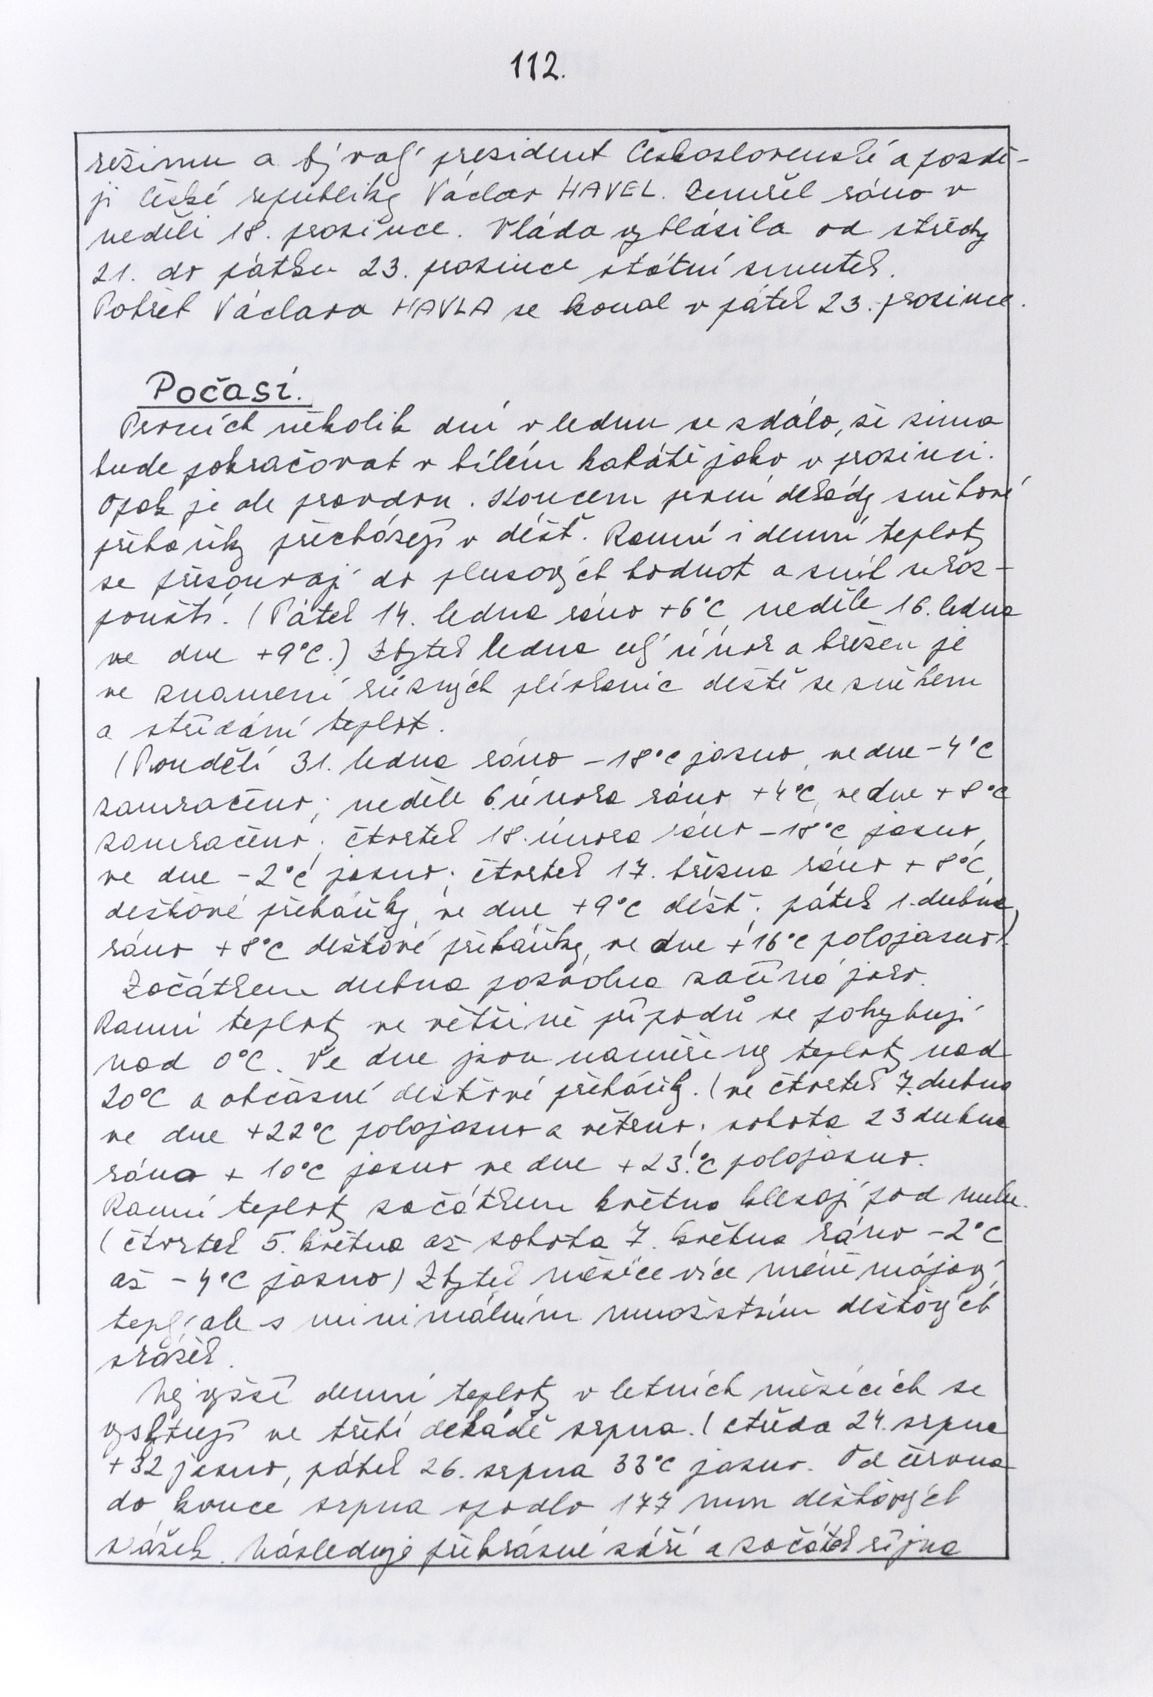 112.
režimu a bývalý president Československé a pozdě-
ji České republiky Václav HAVEL. Zemřel ráno v
neděli 18. prosince. Vláda vyhlásila od středy
21. do pátku 23. prosince státní smutek.
Pohřeb Václava HAVLA se konal v pátek 23. prosince.
Počasí.
Prvních několik dní v lednu se zdálo, že zima
bude pokračovat v bílém kabátě jako v prosinci.
Opak je ale pravdou. Koncem první dekády sněhové
přeháňky přecházejí v déšť. Ranní i denní teploty
se přesouvají do plusových hodnot a sníh se roz-
pouští. (Pátek 14. ledna ráno +6°C, neděle 16. ledna
ve dne +9°C.) Zbytek ledna celý únor a březen je
ve znamení různých plískanic deště se sněhem
a střídání teplot.
(Pondělí 31. ledna ráno -18°C jasno, ve dne -4°C
zamračeno; neděle 6. února ráno +4°C, ve dne +8°C
zamračeno; čtvrtek 18. února ráno -18°C jasno,
ve dne -2°C jasno; čtvrtek 17. března ráno +8°C,
dešťové přeháňky, ve dne +9°C déšť; pátek 1. dubna,
ráno +8°C dešťové přeháňky, ve dne +16°C polojasno).
Začátkem dubna pozvolna začíná jaro.
Ranní teploty ve většině případů se pohybují
nad 0°C. Ve dne jsou naměřeny teploty nad
20°C a občasné dešťové přeháňky. (ve čtvrtek 7. dubna
ve dne +22°C polojasno a větrno; sobota 23 dubna
ráno + 10°C jasno ve dne +23°C polojasno.
Ranní teploty začátkem května klesají pod nulu.
(čtvrtek 5. května až sobota 7. května ráno -2°C
až -4°C jasno) Zbytek měsíce více méně májový,
teplý, ale s minimálním množstvím dešťových
srážek.
Nejvyšší denní teploty v letních měsících se
vyskytují ve třetí dekádě srpna. (středa 24. srpna
+32 jasno, pátek 26. srpna 33°C jasno. Od června
do konce srpna spadlo 177 mm dešťových
srážek. Následuje překrásné září a začátek října